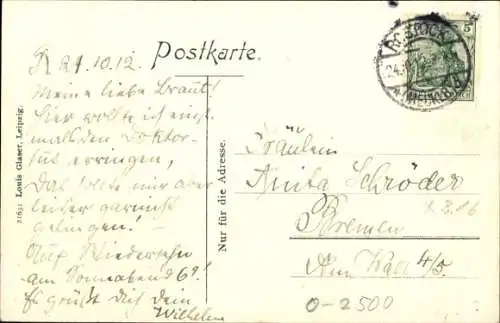 Postkarte.
R. 24.10.12.
Meine liebe Braut!
Hier wollte ich einst
mal den Doktor-
hut erringen,
Das sollte mir aber
leider garnicht
gelingen! -
Auf Wiedersehn
am Sonnabend 6?!
Es grüßt Dich Dein
Wilhelm
21631 Louis Glaser, Leipzig.
Nur für die Adresse.
ROSTOCK
5
Fräulein
Anita Schröder
Bremen
Am Wall 4/5.
0-2500